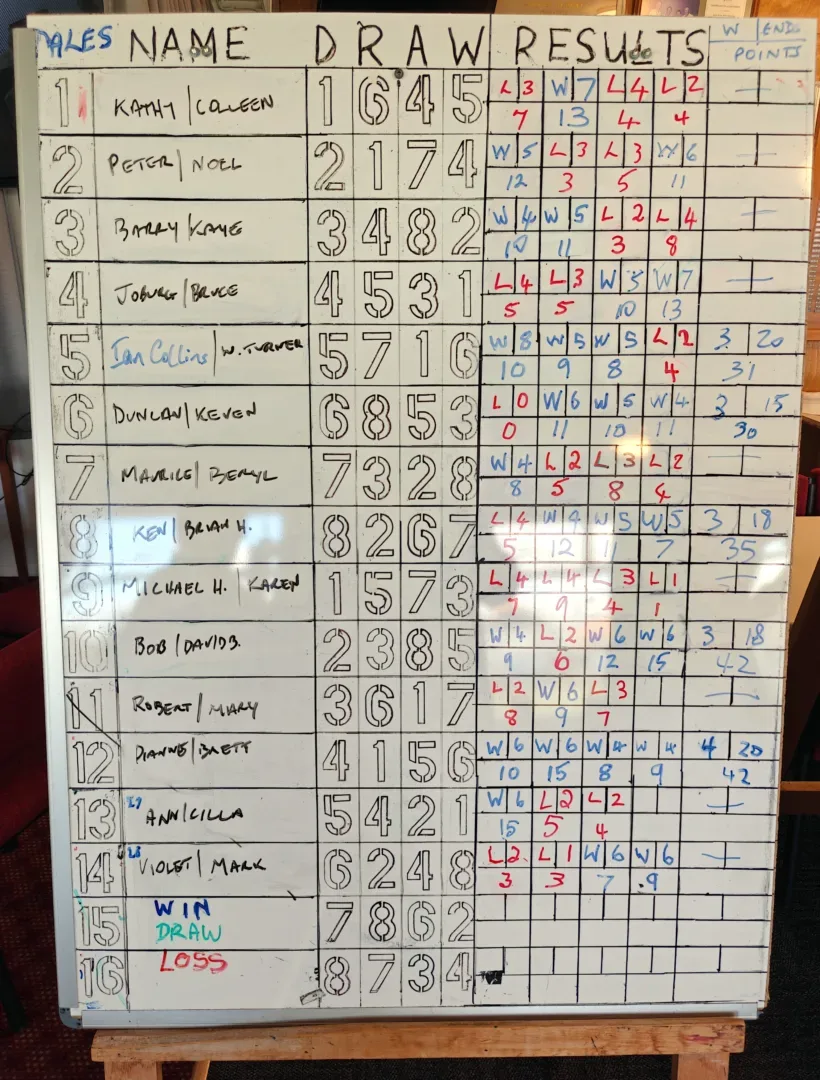 ALES NAME DRAW RESULTS W ENDS
POINTS
1 KATHY/COLLEEN 1 6 4 5 L 3 W 7 L 4 L 2
7 13 4 4
2 PETER/NOEL 2 1 7 4 W 5 L 3 L 3 W 6
12 3 5 11
3 BARRY/KAYE 3 4 8 2 W 4 W 5 L 2 L 4
10 11 3 8
4 JOBURG/BRUCE 4 5 3 1 L 4 L 3 W 5 W 7
5 5 10 13
5 Ian Collins/W. TURNER 5 7 1 6 W 8 W 5 W 5 L 2 3 20
10 9 8 4 31
6 DUNCAN/KEVEN 6 8 5 3 L 0 W 6 W 5 W 4 3 15
0 11 10 11 30
7 MAURICE/BERYL 7 3 2 8 W 4 L 2 L 3 L 2
8 5 8 4
8 KEN/BRIAN H. 8 2 6 7 L 4 W 4 W 5 W 5 3 18
5 12 11 7 35
9 MICHAEL H. / KAREN 1 5 7 3 L 4 L 4 L 3 L 1
7 9 4 1
10 BOB/DAVID B. 2 3 8 5 W 4 L 2 W 6 W 6 3 18
9 6 12 15 42
11 ROBERT/MARY 3 6 1 7 L 2 W 6 L 3
8 9 7
12 DIANNE/BRETT 4 1 5 6 W 6 W 6 W 4 W 4 4 20
10 15 8 9 42
13 ANN/CILLA 5 4 2 1 W 6 L 2 L 2
15 5 4
14 VIOLET/MARK 6 2 4 8 L 2 L 1 W 6 W 6
3 3 7 9
15 WIN 7 8 6 2
DRAW
16 LOSS 8 7 3 4